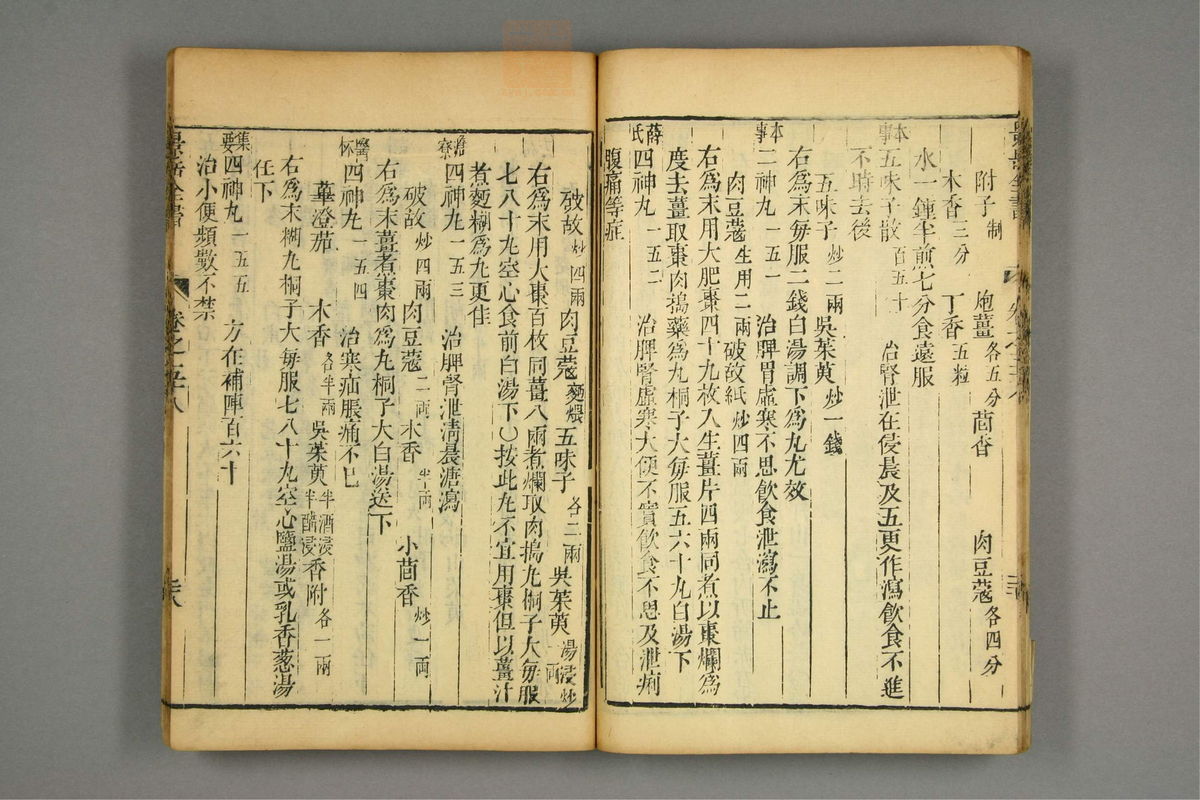 附子制 炮薑各五分 茴香 肉豆蔻各四分
木香三分 丁香五粒
水一鍾半煎七分食遠服
本事五味子散百五十 治腎泄在侵晨及五更作瀉飲食不進
不時去後
五味子炒二兩 吳茱萸炒一錢
右為末每服二錢白湯調下為丸尤效
本事二神丸一五一 治脾胃虛寒不思飲食泄瀉不止
肉豆蔻生用二兩 破故紙炒四兩
右為末用大肥棗四十九枚入生薑片四兩同煮以棗爛為
度去薑取棗肉搗藥為丸桐子大每服五六十丸白湯下
薛氏四神丸一五二 治脾腎虛寒大便不實飲食不思及泄痢
腹痛等症
破故炒四兩 肉豆蔻麵煨 五味子各二兩 吳茱萸湯浸炒一兩
右為末用大棗百枚同薑八兩煮爛取肉搗丸桐子大每服
七八十丸空心食前白湯下○按此丸不宜用棗但以薑汁
煮麵糊為丸更佳
澹寮四神丸一五三 治脾腎泄清晨溏瀉
破故炒四兩 肉豆蔻二兩 木香半兩 小茴香炒一兩
右為末薑煮棗肉為丸桐子大白湯送下
醫林四神丸一五四 治寒疝脹痛不已
蓽澄茄 木香各半兩 吳茱萸半酒浸半醋浸 香附各一兩
右為末糊丸桐子大每服七八十丸空心鹽湯或乳香葱湯
任下
集要四神丸一五五 方在補陣百六十
治小便頻數不禁
景岳全書 卷之五八